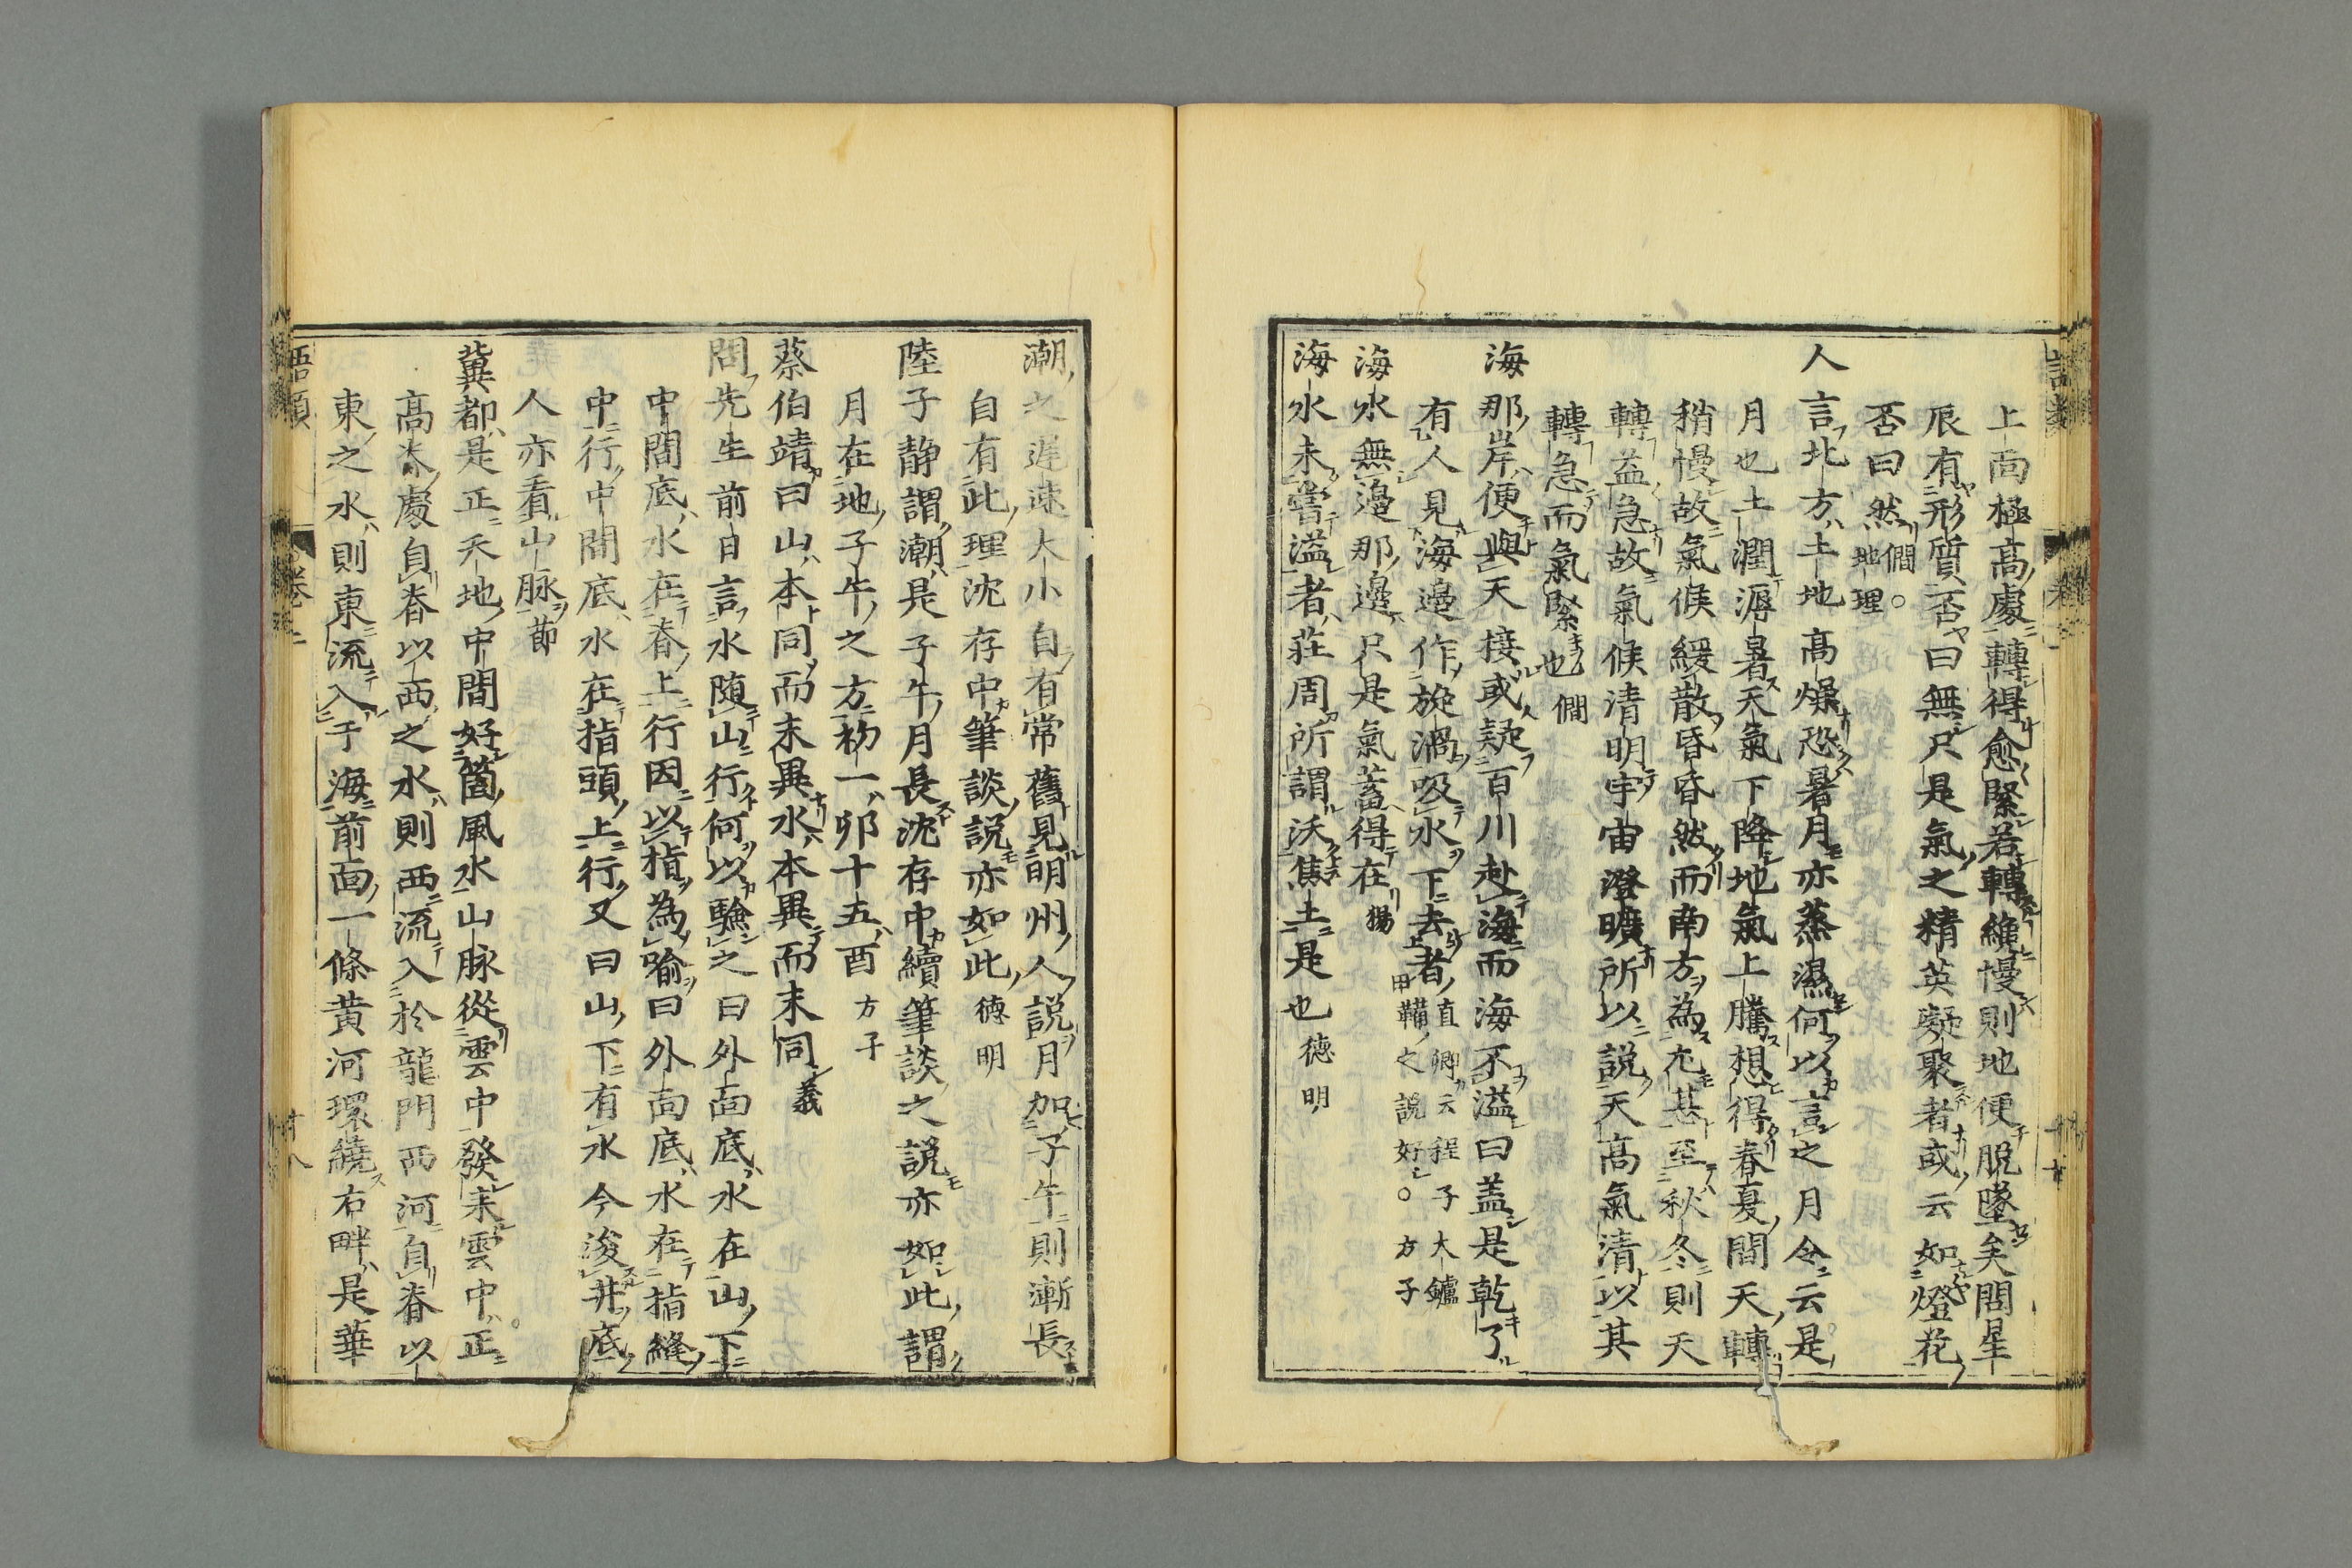 上面極高處轉得愈緊若轉纔慢則地便脱墜矣問星
辰有形質否曰無只是氣之精英凝聚者或云如燈花
否曰然僩○地理
人言北方土地高燥恐暑月亦蒸濕何以言之月令云是
月也土潤溽暑天氣下降地氣上騰想得春夏間天轉
稍慢故氣候緩散昏昏然而南方為尤甚至秋冬則天
轉益急故氣候清明宇宙澄曠所以説天高氣清以其
轉急而氣緊也 僩
海那岸便與天接或疑百川赴海而海不溢曰盖是乾了
有人見海邉作旋渦吸水下去者直卿云程子大鑪鞴之説好○方子
海水無邉那邉只是氣蓄得在 揚
海水未嘗溢者莊周所謂沃焦土是也 徳明
潮之遅速大小自有常舊見明州人説月加子午則漸長
自有此理沈存中筆談説亦如此 徳明
陸子静謂潮是子午月長沈存中續筆談之説亦如此謂
月在地子午之方初一卯十五酉 方子
蔡伯靖曰山本同而末異水本異而末同 義
問先生前日言水随山行何以驗之曰外面底水在山下
中間底水在脊上行因以指為喻曰外面底水在指縫
中行中間底水在指頭上行又曰山下有水今浚井底
人亦看山脉 節
冀都是正天地中間好箇風水山脉從雲中發来雲中正
高脊處自脊以西之水則西流入於龍門西河自脊以
東之水則東流入于海前面一條黄河環繞右畔是華
語類 卷二 十八